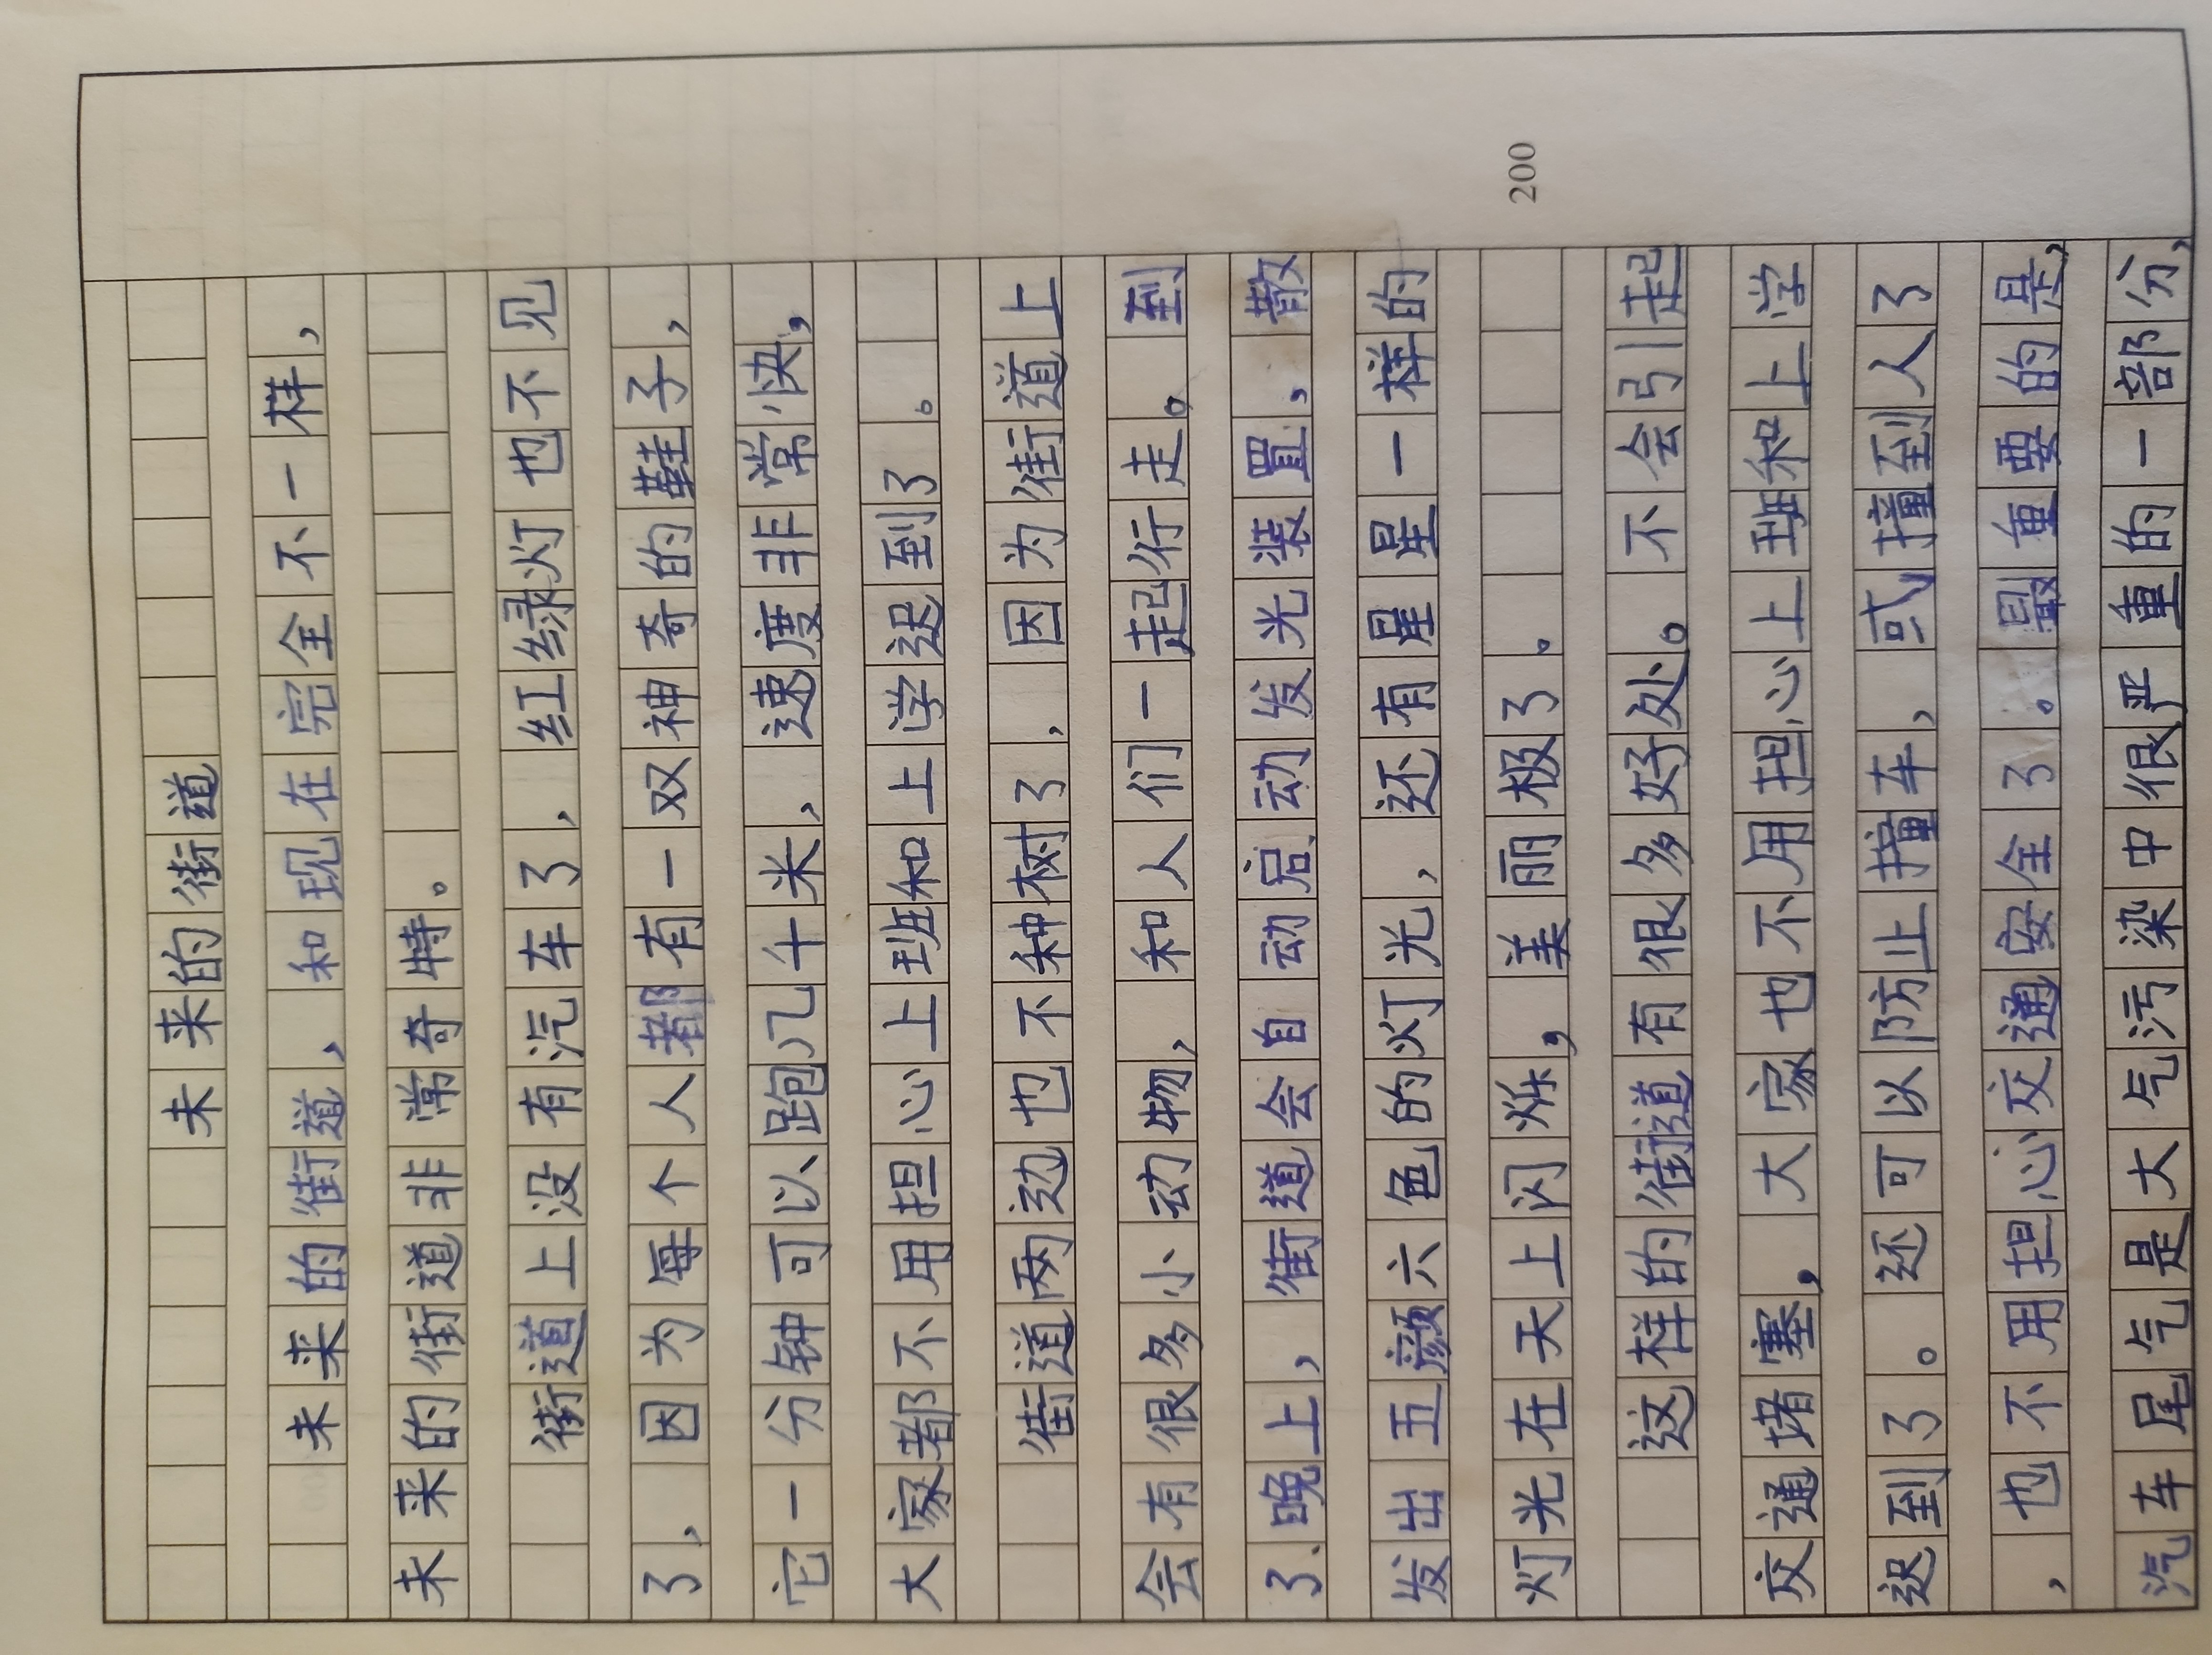 未来的街道
未来的街道，和现在完全不一样，
未来的街道非常奇特。
街道上没有汽车了，红绿灯也不见
了，因为每个人都有一双神奇的鞋子，
它一分钟可以跑几千米，速度非常快，
大家都不用担心上班和上学迟到了。
街道两边也不种树了，因为街道上
会有很多小动物，和人们一起行走。到
了晚上，街道会自动启动发光装置，散
发出五颜六色的灯光，还有星星一样的
灯光在天上闪烁，美丽极了。
这样的街道有很多好处。不会引起
交通堵塞，大家也不用担心上班和上学
迟到了。还可以防止撞车，或撞到人了
，也不用担心交通安全了。最重要的是，
汽车尾气是大气污染中很严重的一部分，
200